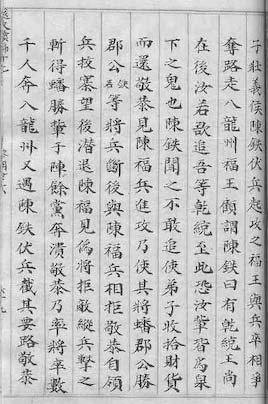 子壯義侯陳鉄伏兵起攻之福王與兵卒相爭
奪路走八龍州福王顧謂陳鉄曰有乾統王尚
在後汝若欲追吾等乾統至此恐汝輩皆為梟
下之鬼也陳鉄聞之不敢追使弟子收拾財貨
而還敬恭見陳福兵進攻乃使其將蟠郡公勝
郡公等將兵斷後與陳福兵相拒敬恭自領
兵拔寨望後潜退陳福見偽將拒敵縱兵擊之
斬得蟠勝輩于陣餘黨奔潰敬恭乃率將卒數
千人奔八龍州又遇陳鉄伏兵截其要路敬恭